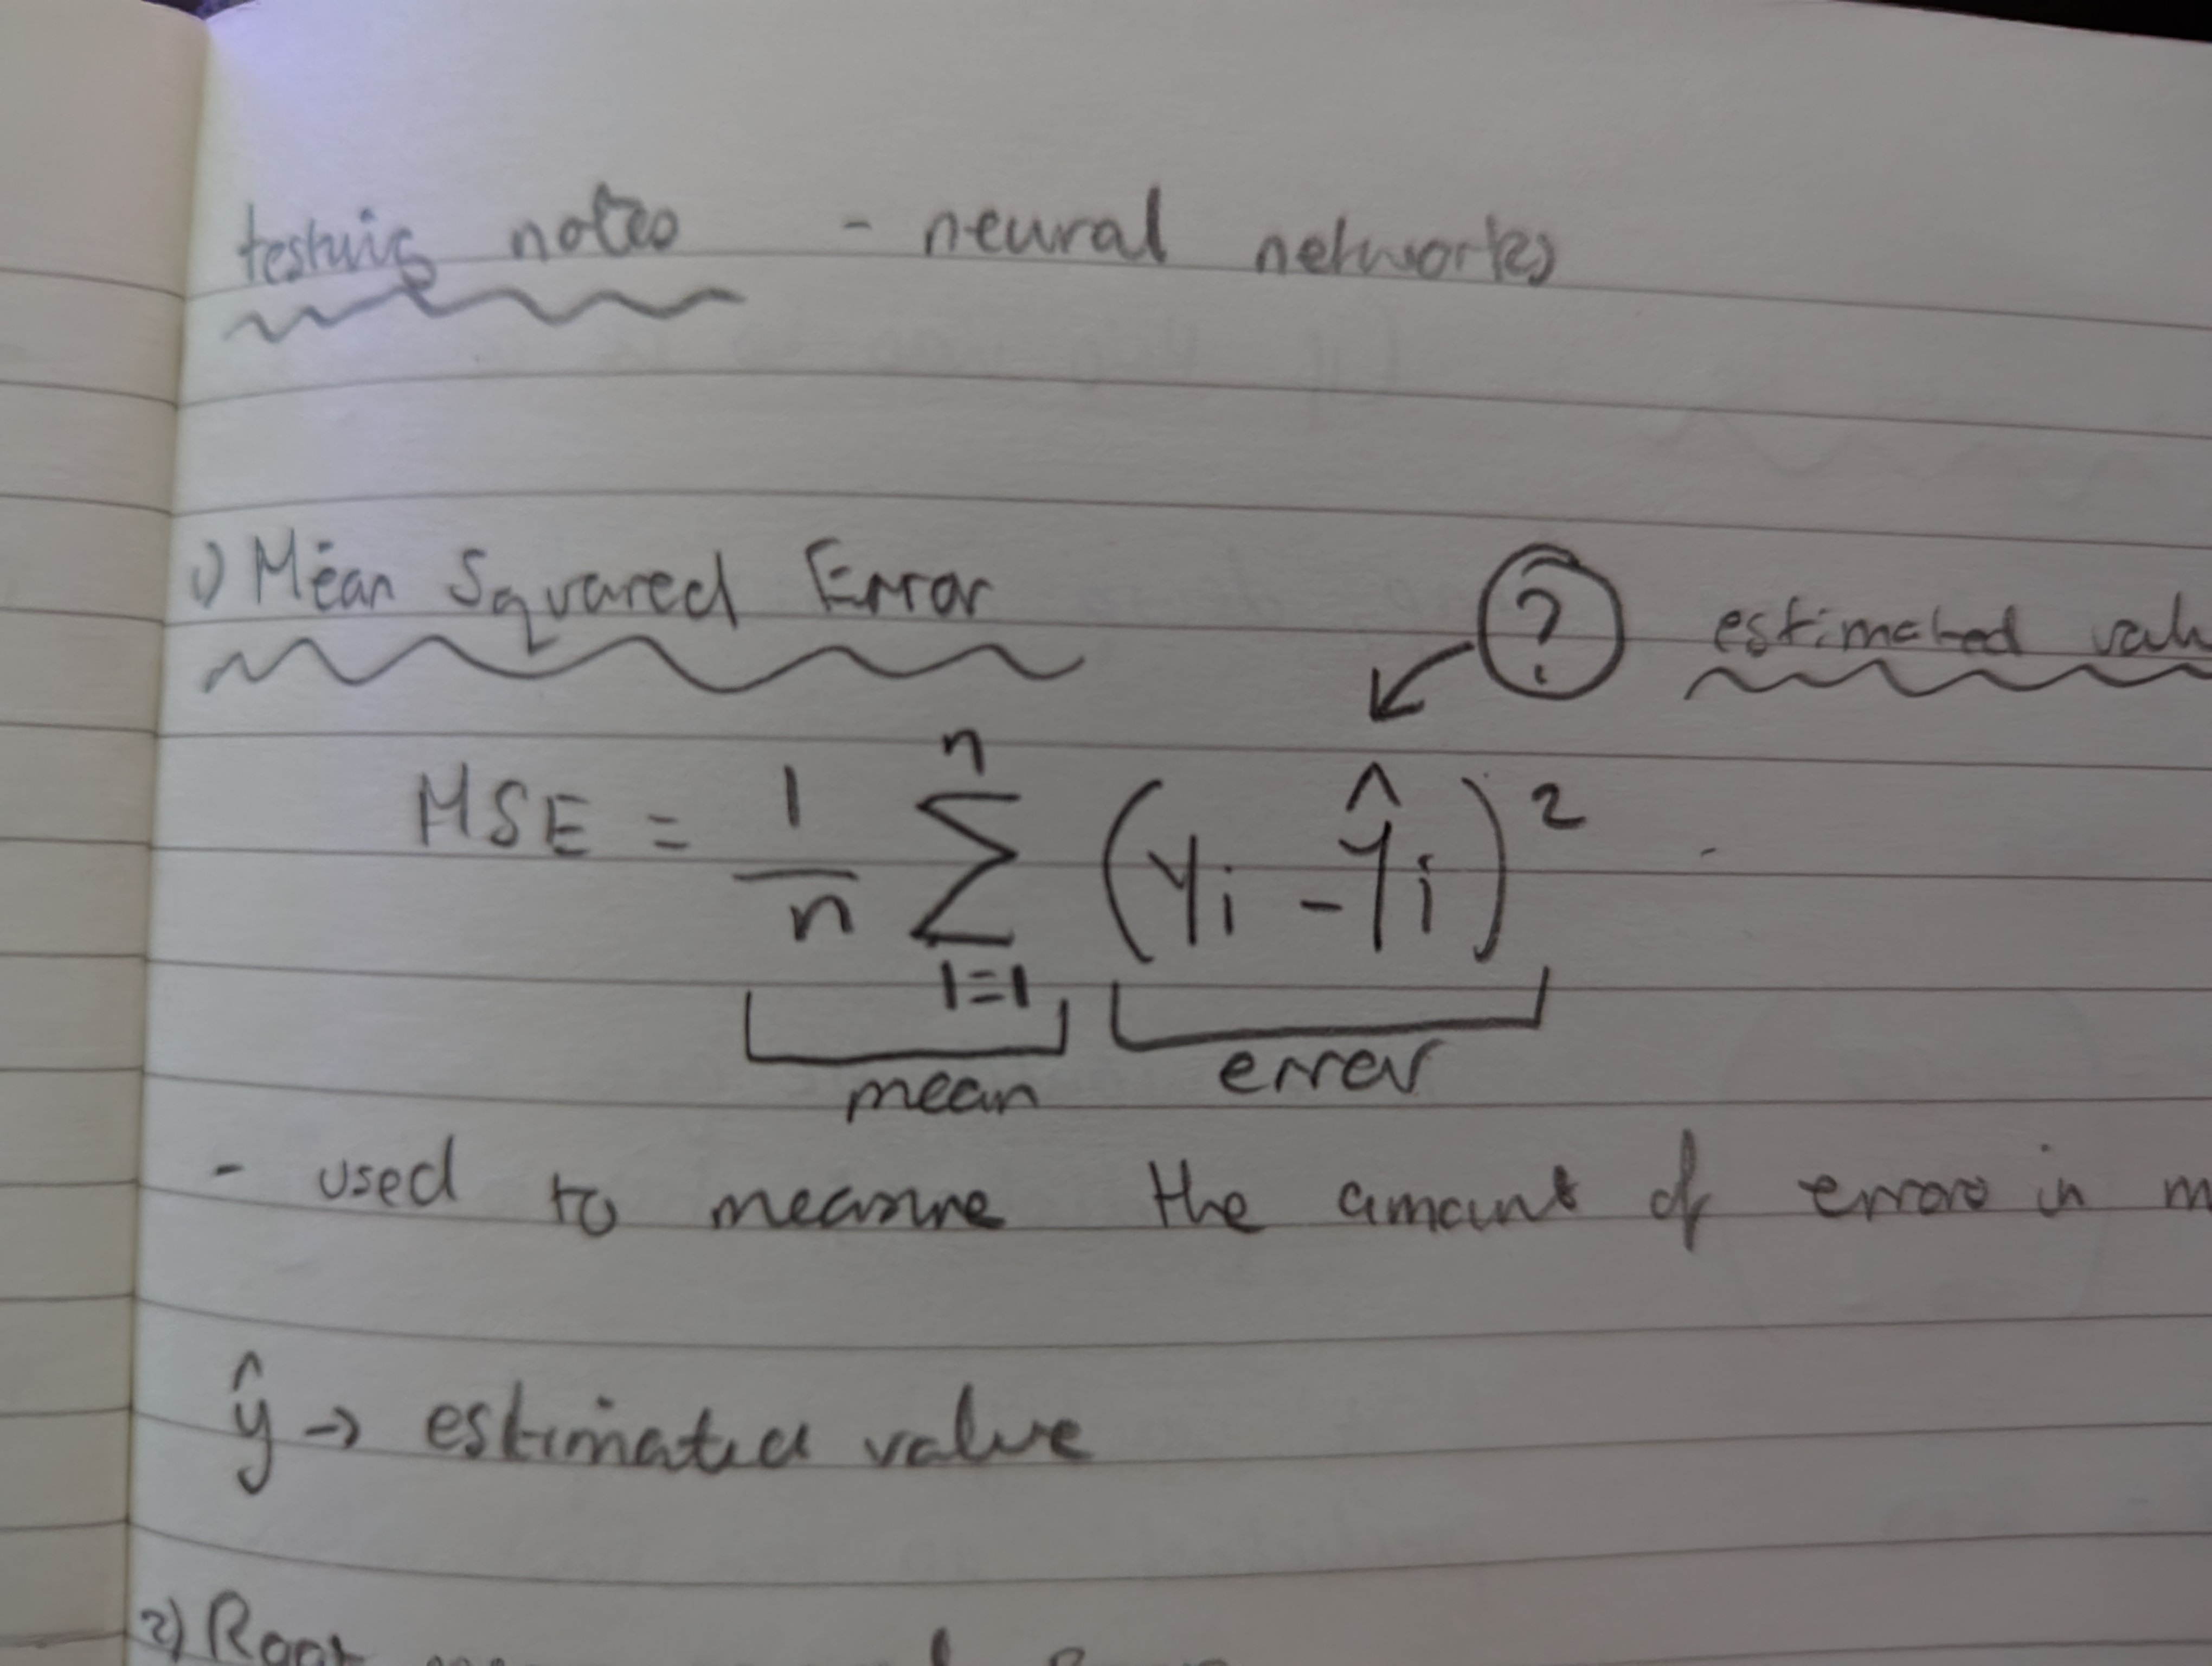 testing notes - neural networks
1) Mean Squared Error
? estimated
MSE = 1/n n ∑ i=1 (yi - ŷi)²
mean error
- used to measure the amount of errors in
ŷ → estimated value
2) Root